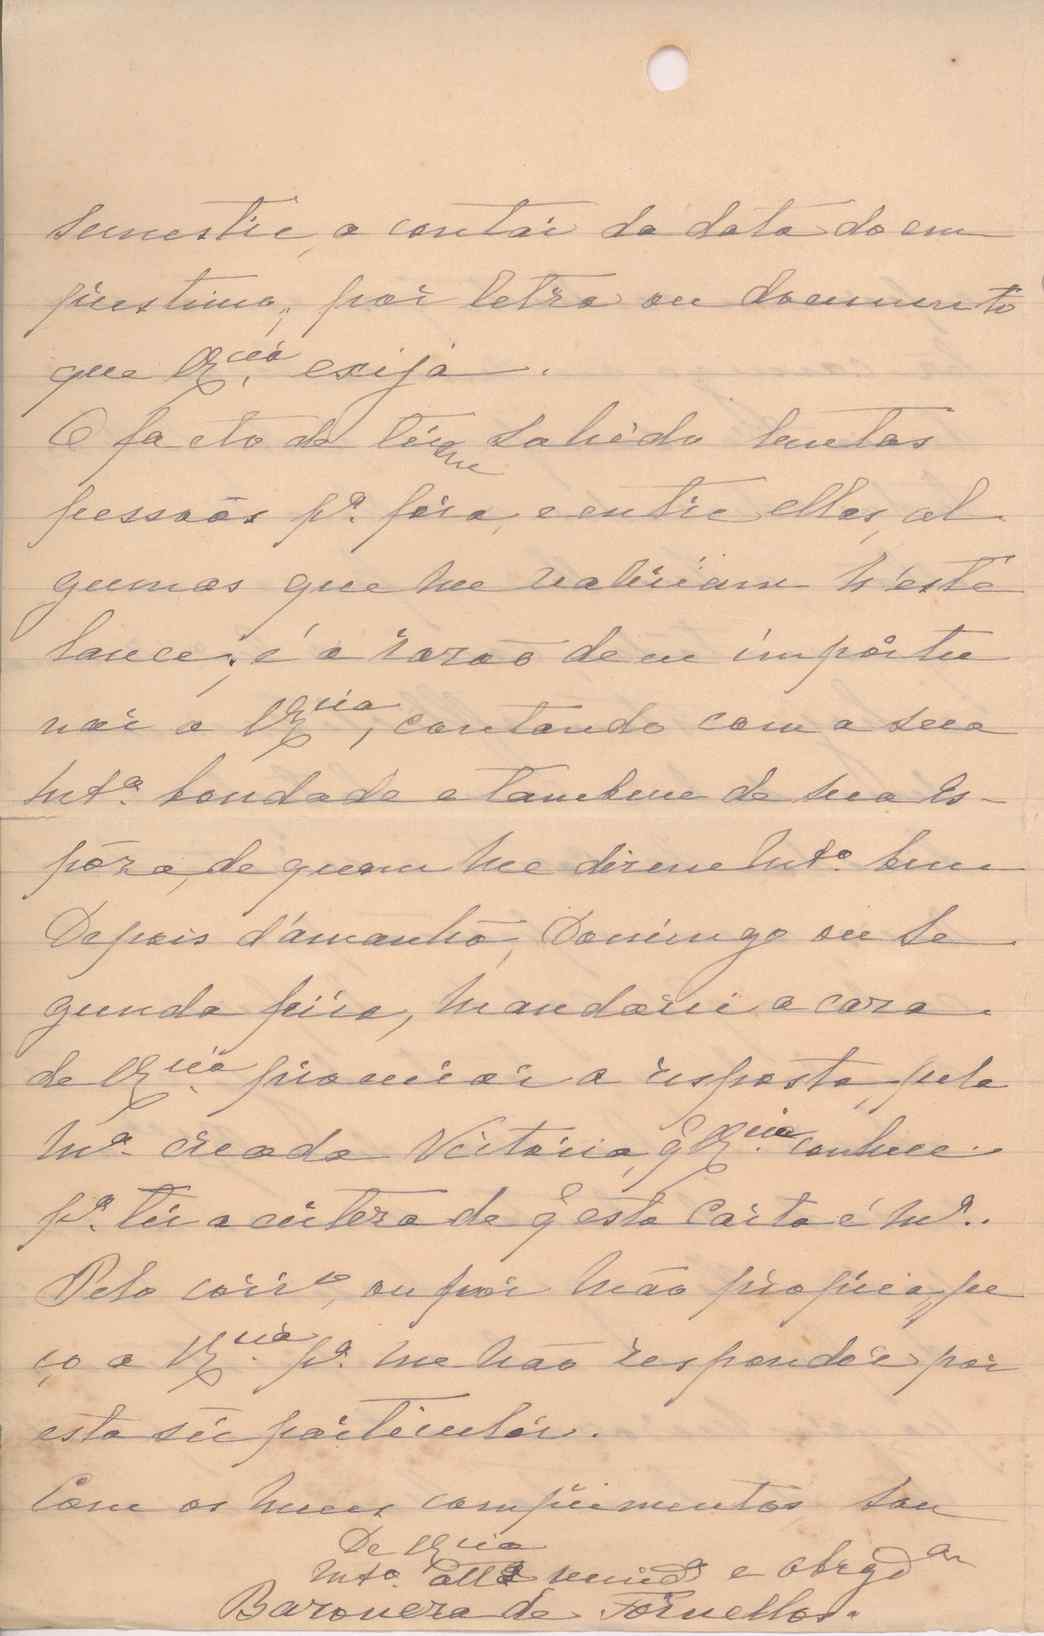 semestre, a contar da data do em
prestimo, por letra ou documento
que VExª. exija.
O facto de ter-me sahido tantas
pessoas pª. fóra, e entre ellas, al
gumas que me valeriam n'este
lance, é a razão de eu importu
nar a VExcia, contando com a sua
mtª. bondade e tambem de sua Es-
pôza, de quem me dizem mtº. bem
Depois d'amanhã, Domingo ou Se
gunda feira, mandarei a caza
de VExcia. procurar a resposta, pela
mª. creada Victoria, q̃ VExcia. conhece.
pª. ter a certeza de q̃ esta Carta é mª.
Pelo corrº, ou por mão propria, pe
ço a VExcia. pª. me não responder por
esta ser particular.
Com os meus comprimentos sou
De VExcia
Mtº. attª e obrgdª
Baroneza de Fornellos.